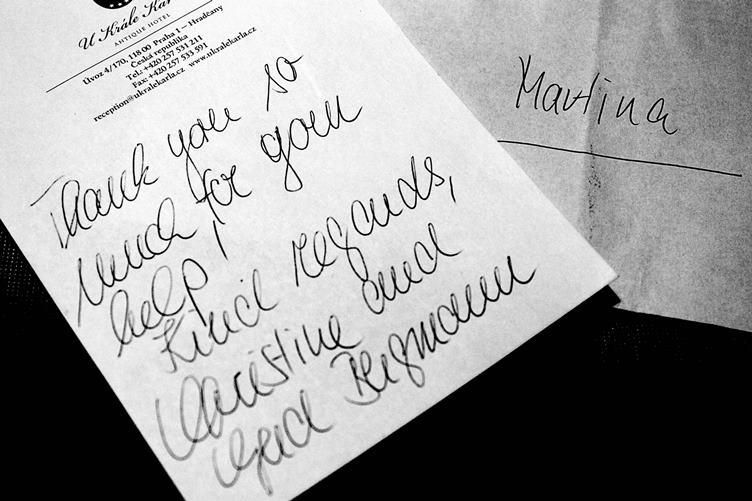 U Krále Kar
ANTIQUE HOTEL
Úvoz 4/170, 118 00 Praha 1 – Hradčany
Česká republika
Tel.: +420 257 531 211
Fax: +420 257 533 591
reception@ukralekarla.cz www.ukralekarla.cz
Thank you so
much for your
help!
Kind regards,
Christine and
Gerd Bergmann
Martina